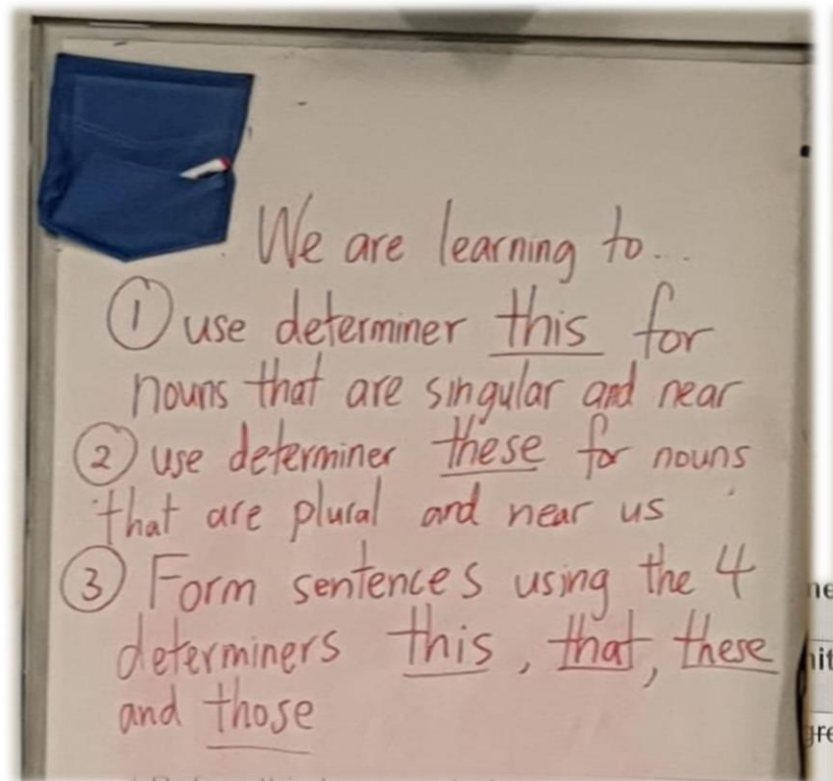 We are learning to...
① use determiner this for
nouns that are singular and near
② use determiner these for nouns
that are plural and near us
③ Form sentences using the 4
determiners this, that, these
and those